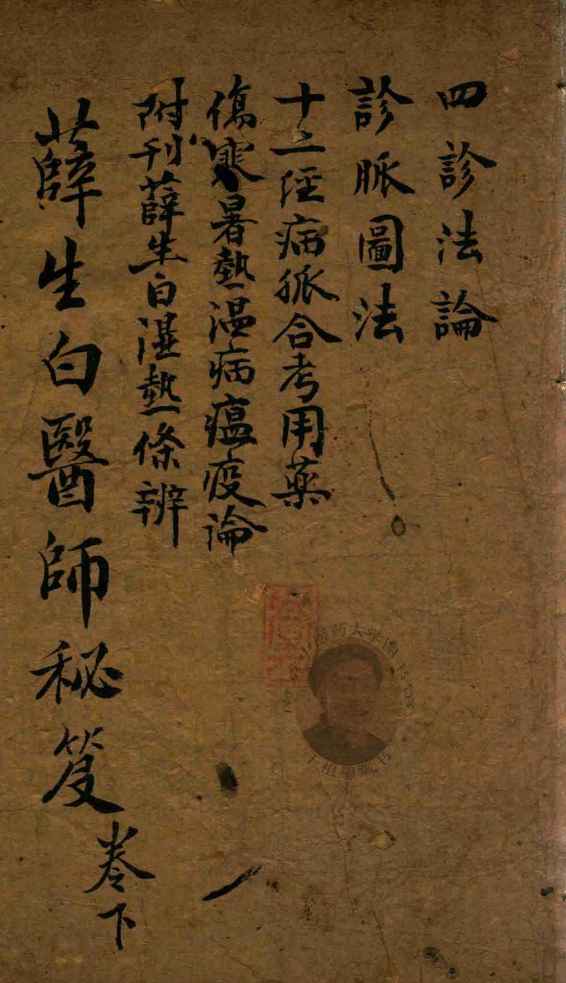 四診法論
診脈圖法
十二经病脈合考用薬
傷寒暑熱温病瘟疫論
附刊薛生白濕熱條辨
薛生白醫師秘笈卷下